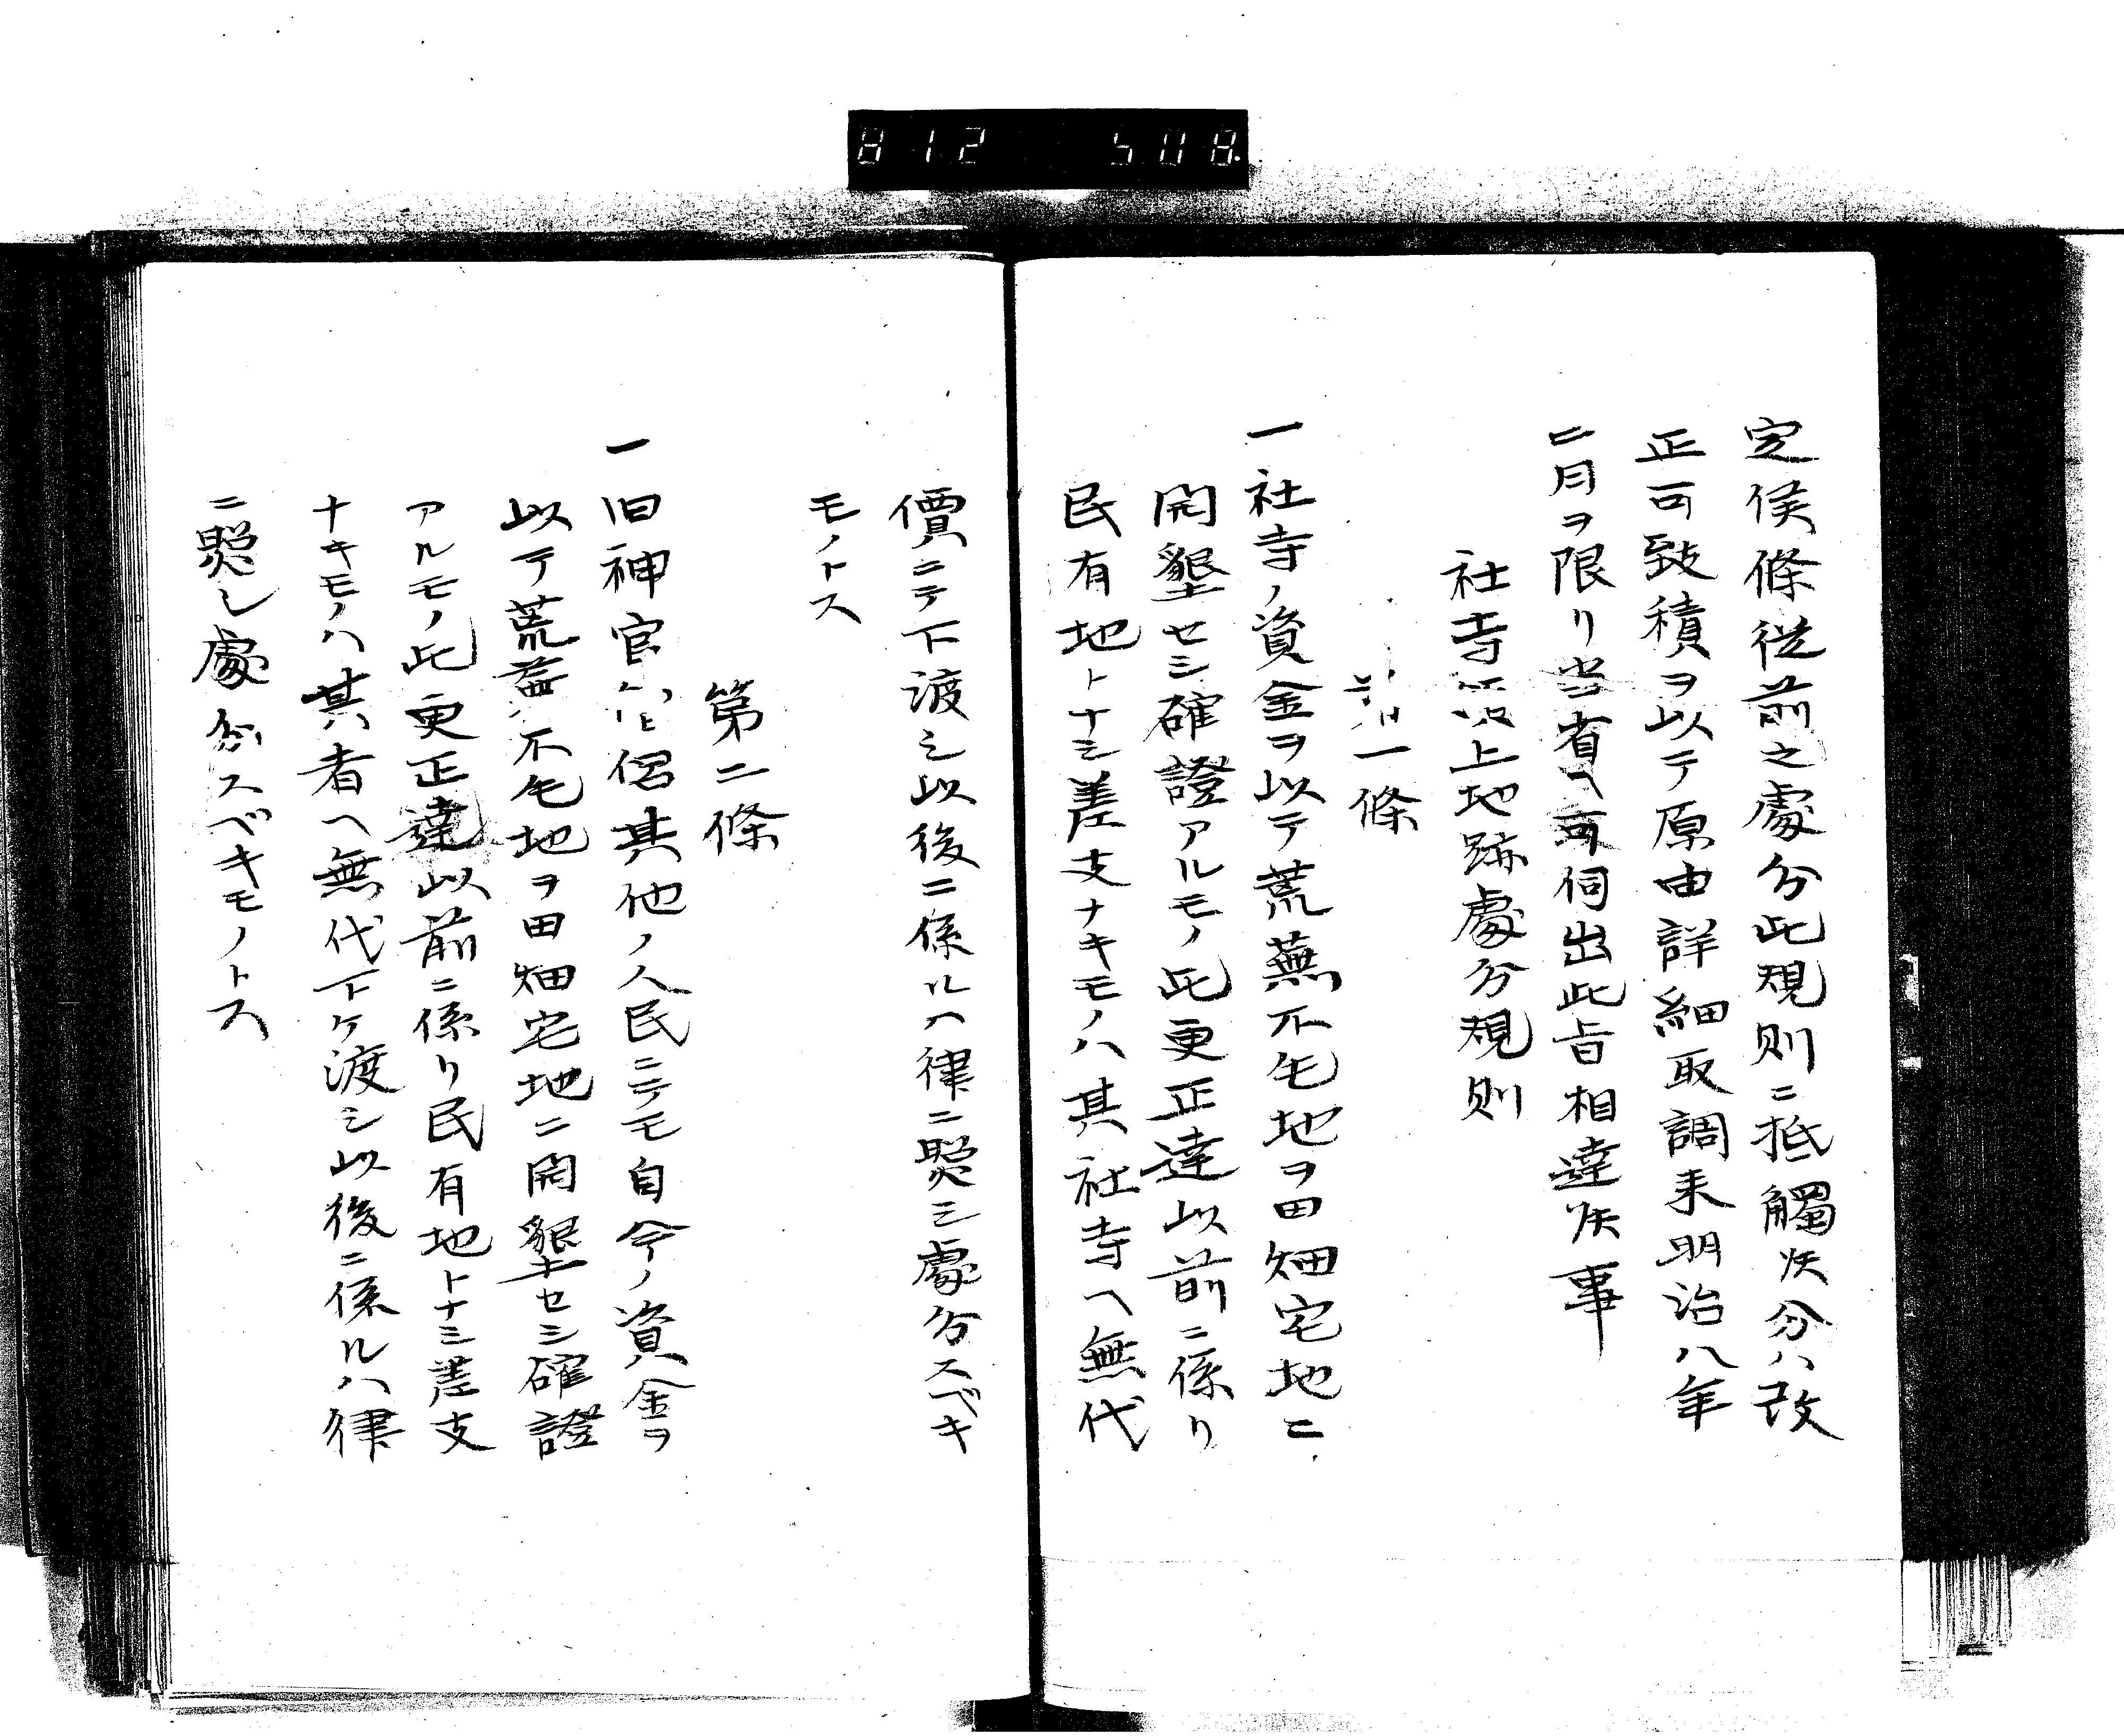 812 508.
定候條従前之處分此規則ニ抵觸候分ハ改
正可致積ヲ以テ原由詳細取調来明治八年
二月ヲ限リ当省ヘ可伺出此旨相達候事
社寺上地跡處分規則
第一條
一社寺ノ資金ヲ以テ荒蕪不毛地ヲ田畑宅地ニ
開墾セシ確證アルモノ此更正達以前ニ係リ
民有地トナシ差支ナキモノハ其社寺ヘ無代
價ニテ下渡シ以後ニ係ルハ律ニ照シ處分スベキ
モノトス
第二條
一旧神官僧侶其他ノ人民ニテモ自今ノ資金ヲ
以テ荒蕪不毛地ヲ田畑宅地ニ開墾セシ確證
アルモノ此更正達以前ニ係リ民有地トナシ差支
ナキモノハ其者ヘ無代下ケ渡シ以後ニ係ルハ律
ニ照シ處分スベキモノトス